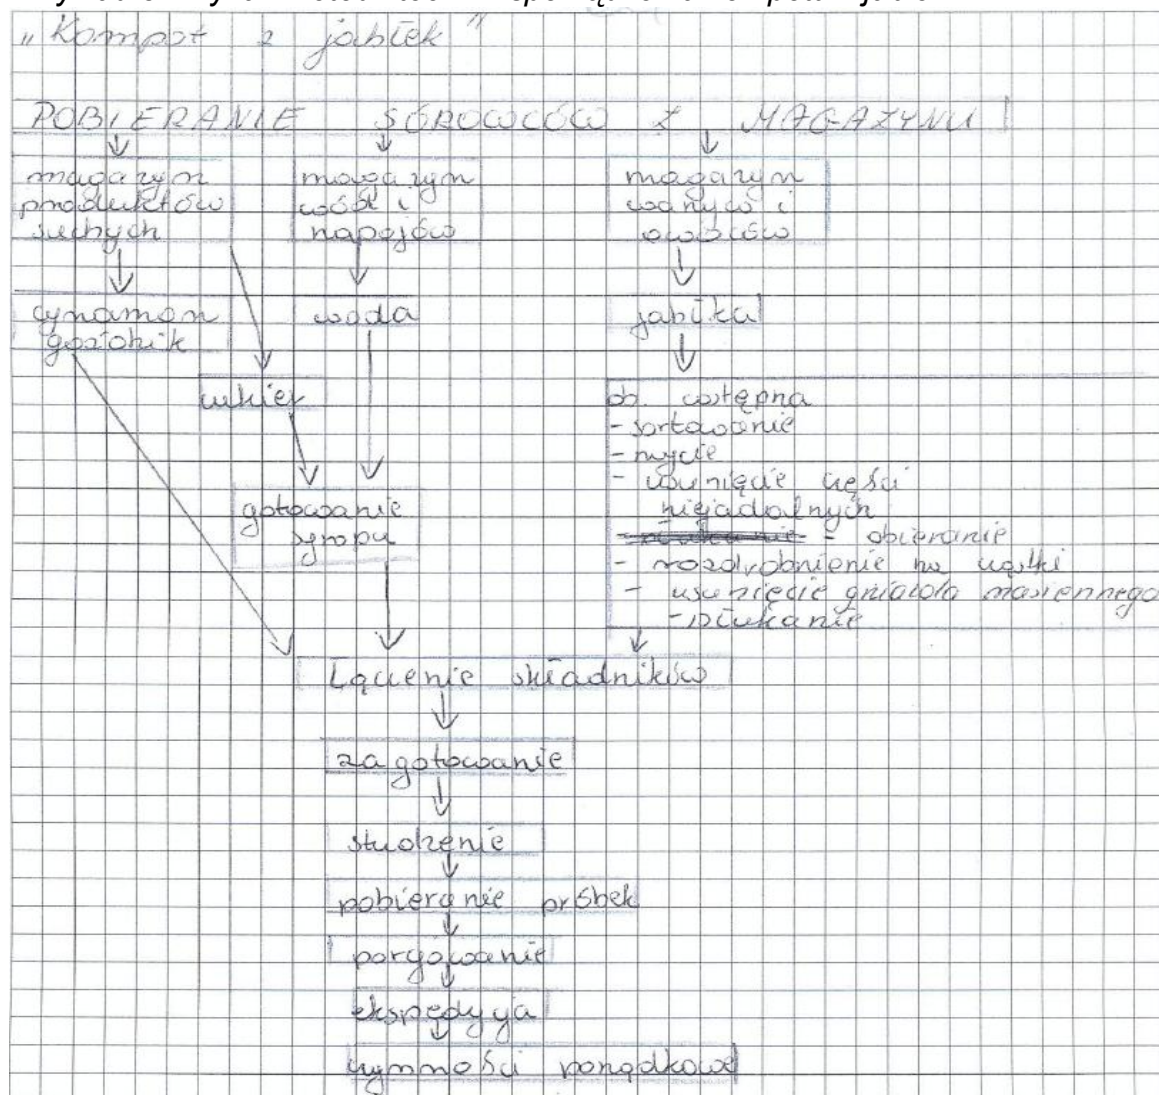 „Kompot z jabłek”
POBIERANIE SÓROWCÓW Z MAGAZYNU
magazyn
produktów
suchych
magazyn
wód i
napojów
magazyn
warzyw i
owoców
cynamon
goździk
woda
jabłka
cukier
ob. wstępna
- sortowanie
- mycie
- usunięcie części
niejadalnych
- obieranie
- rozdrobnienie na cząstki
- usunięcie gniazda nasiennego
- płukanie
gotowanie
syropu
Łączenie składników
zagotowanie
studzenie
pobieranie próbek
porcjowanie
ekspedycja
czynności porządkowe